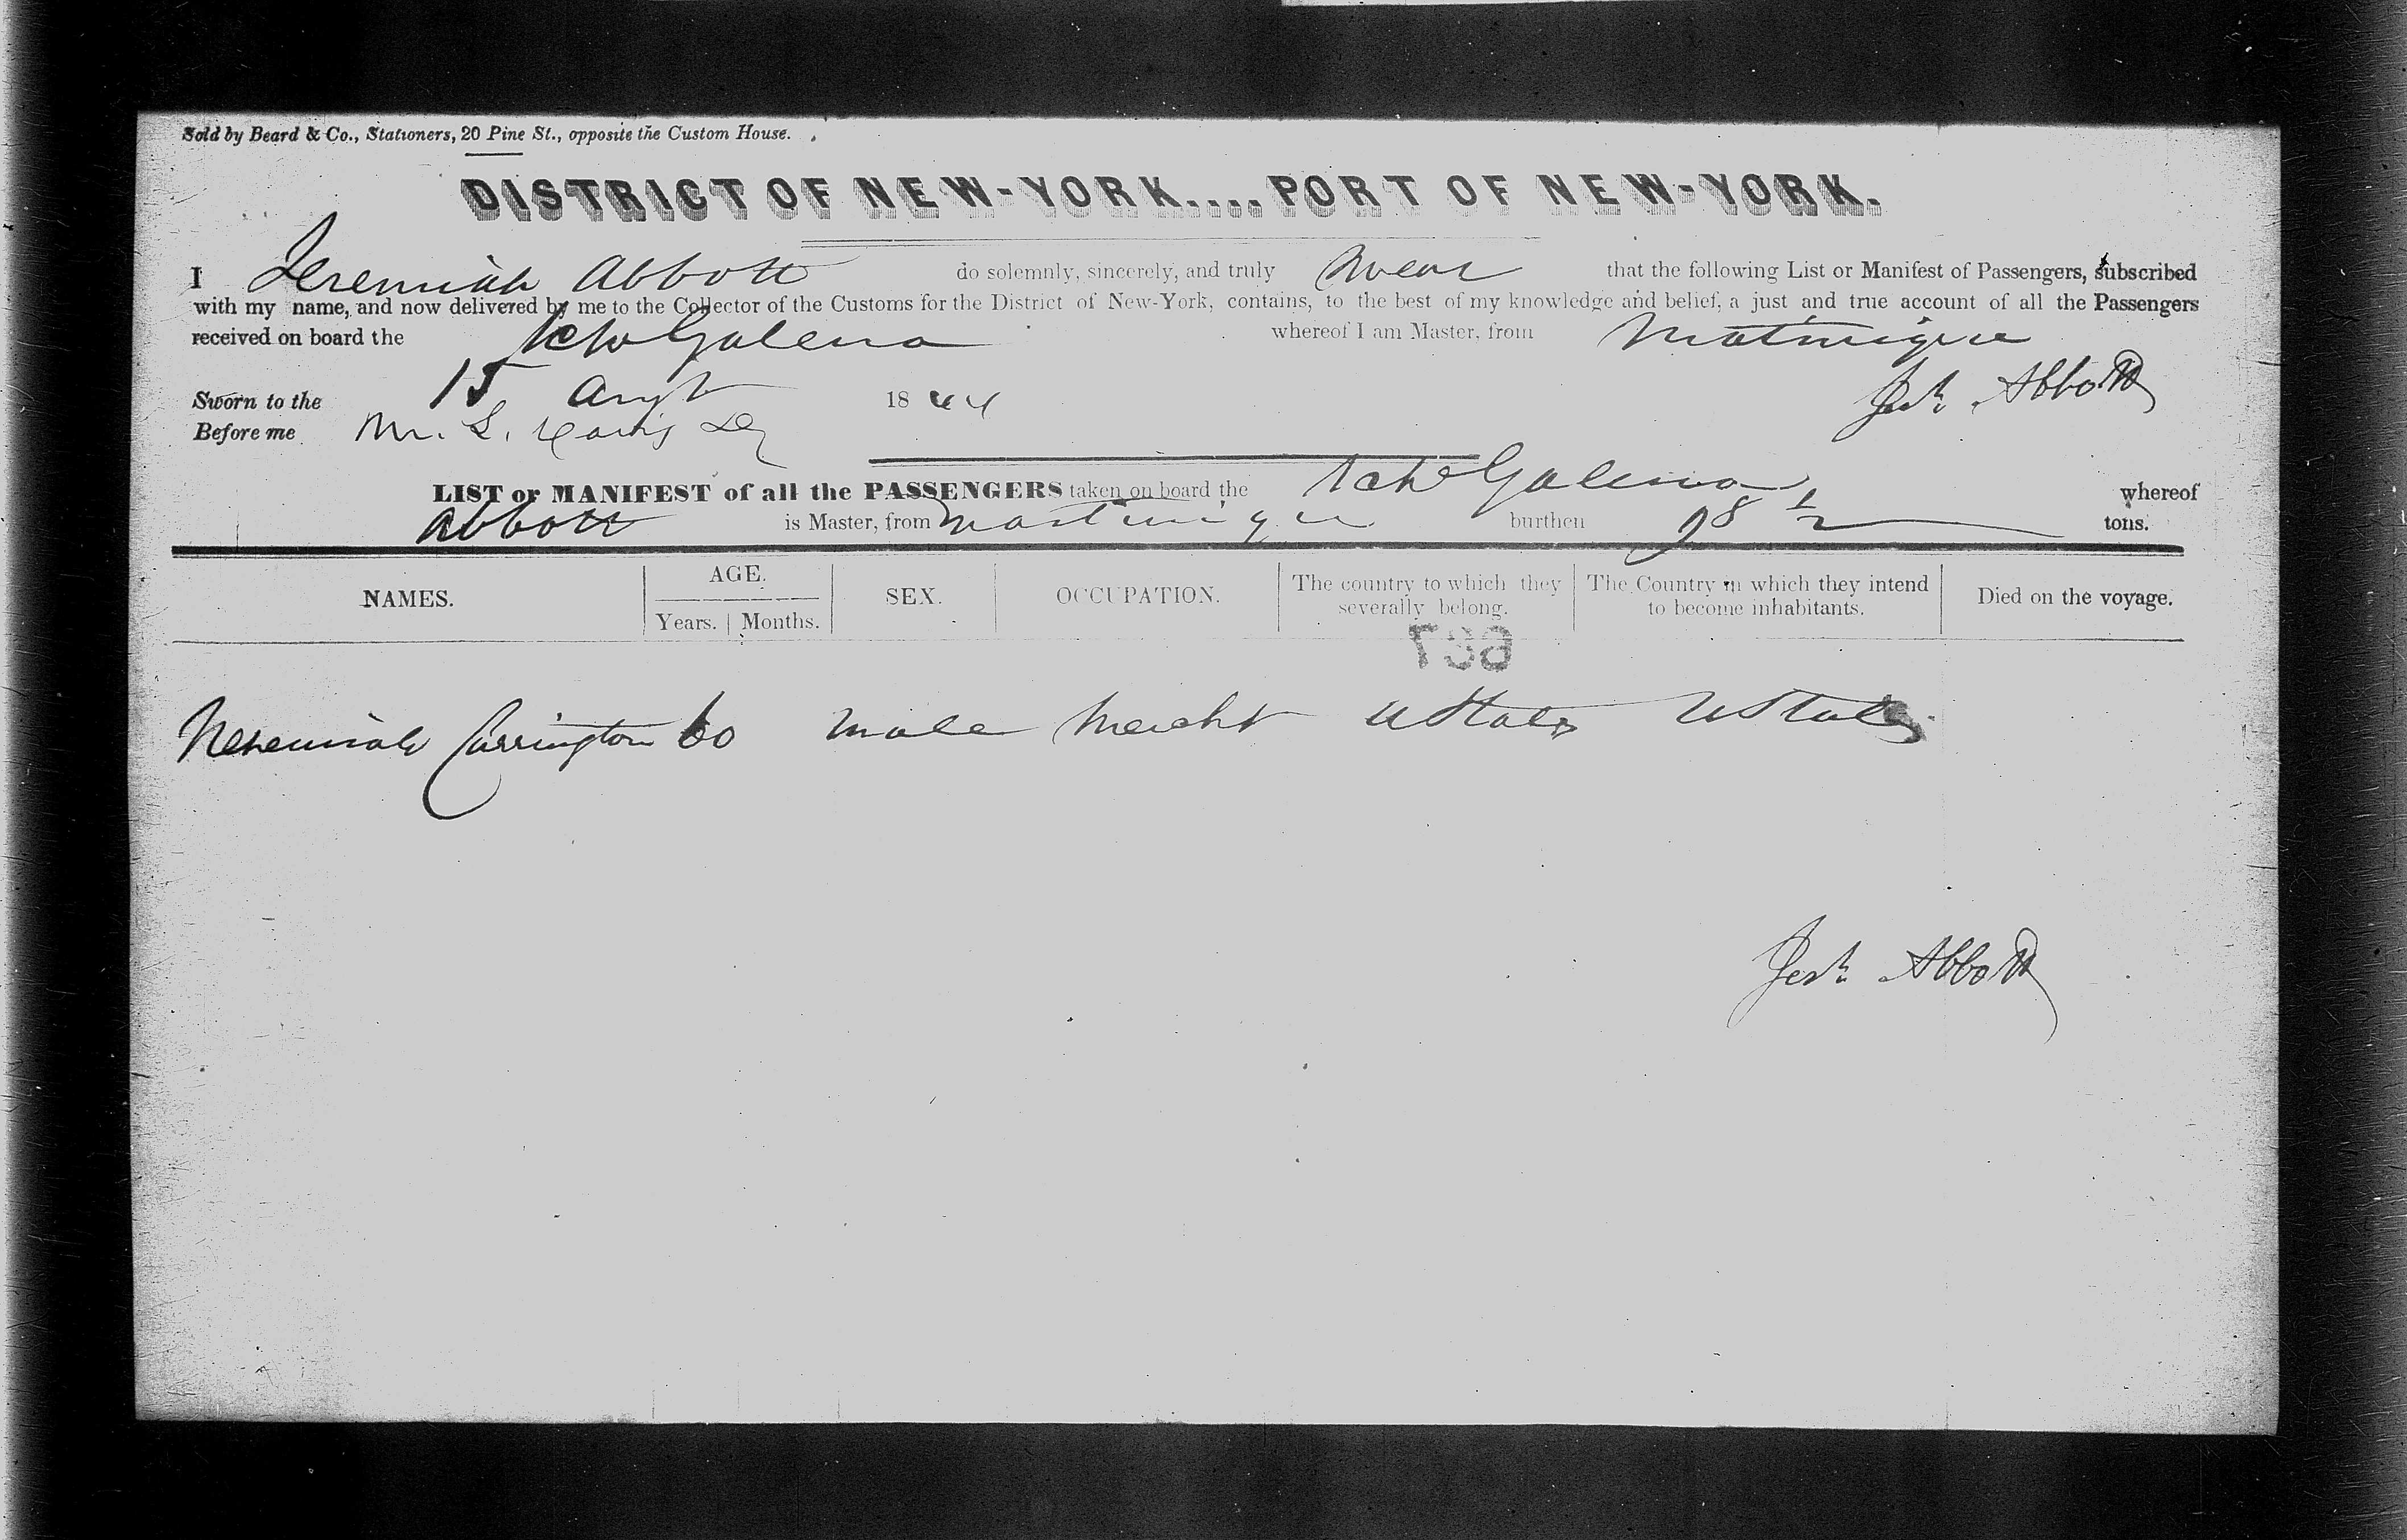 Sold by Beard & Co., Stationers, 20 Pine St., opposite the Custom House.
DISTRICT OF NEW-YORK....PORT OF NEW-YORK.
I Jeremiah Abbott do solemnly, sincerely, and truly swear that the following List or Manifest of Passengers, subscribed
with my name, and now delivered by me to the Collector of the Customs for the District of New-York, contains, to the best of my knowledge and belief, a just and true account of all the Passengers
received on board the Schr Galena whereof I am Master, from Matinique
Sworn to the 15 Augt 1844 Jerh Abbott
Before me
LIST or MANIFEST of all the PASSENGERS taken on board the Schr Galena whereof
Abbott is Master, from Martinique burthen 98 1/2 tons.
NAMES. AGE. SEX. OCCUPATION. The country to which they severally belong. The Country in which they intend to become inhabitants. Died on the voyage.
Years. Months.
697
Nehemiah Carrington 60 male Mercht U States U States
Jerh Abbott